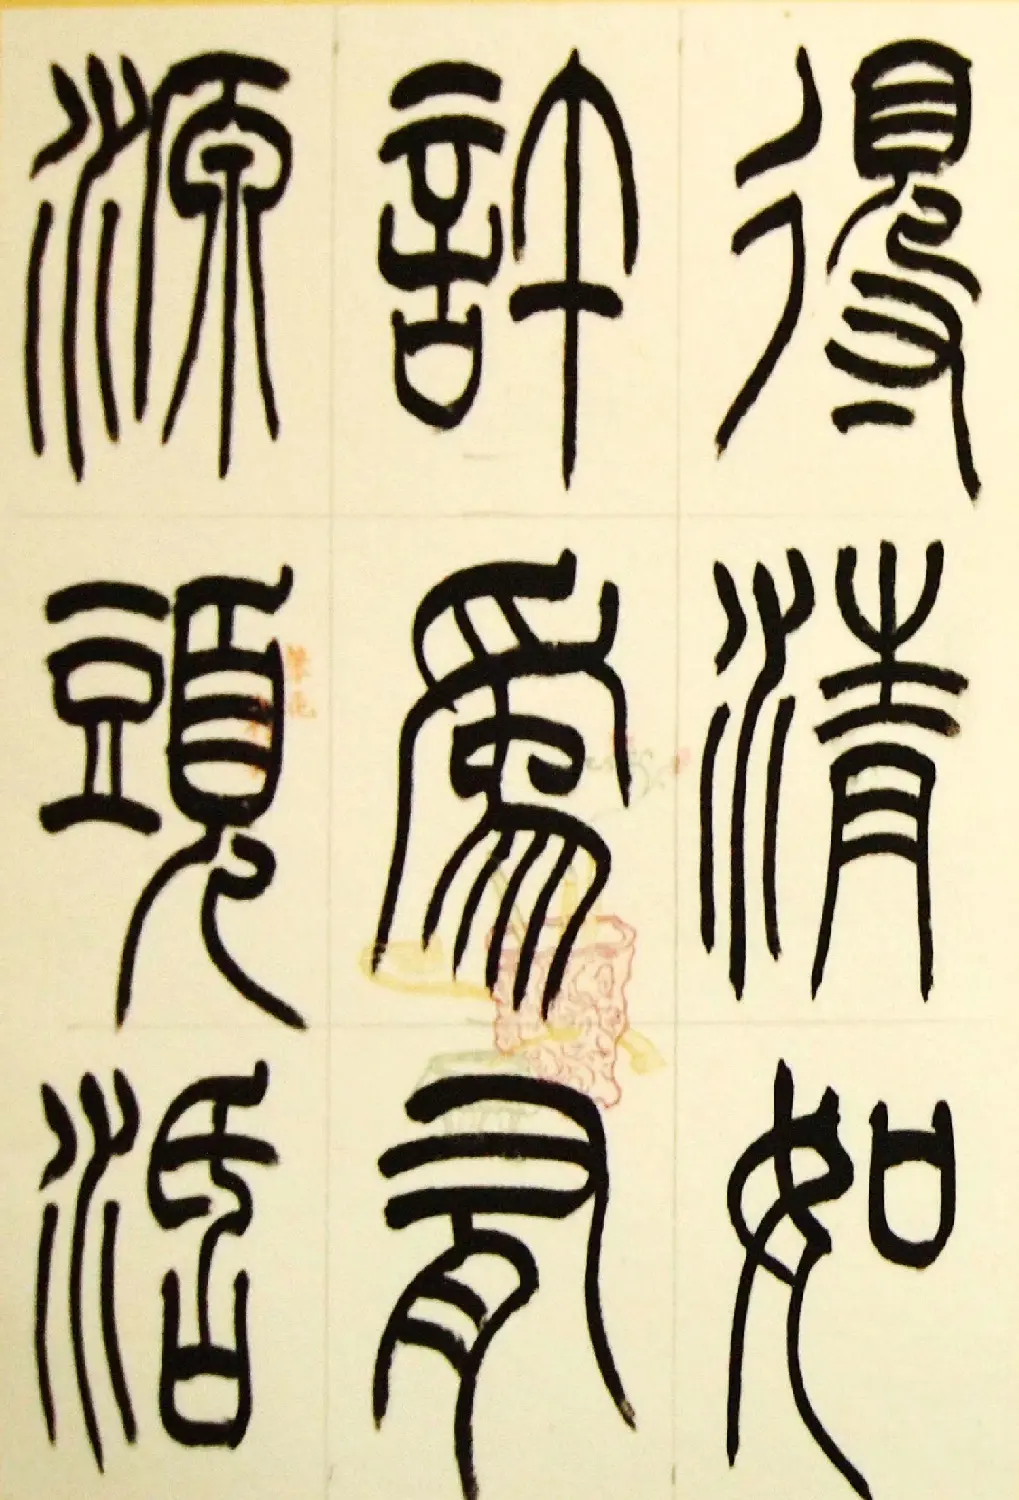 得清如
許爲有
源頭活